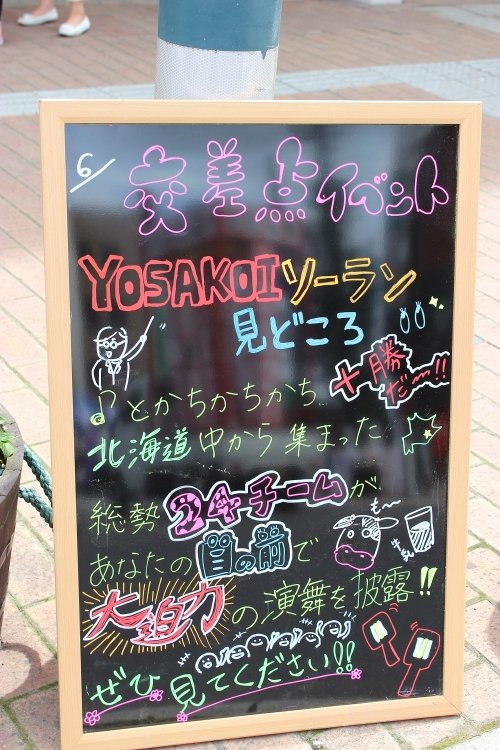 6/
交差点イベント
YOSAKOIソーラン
見どころ
♪とかちかちかち
十勝だー!!
北海道中から集まった
総勢24チームが
も〜
牛乳
あなたの目の前で
大迫力の演舞を披露!!
ぜひ見てください!!